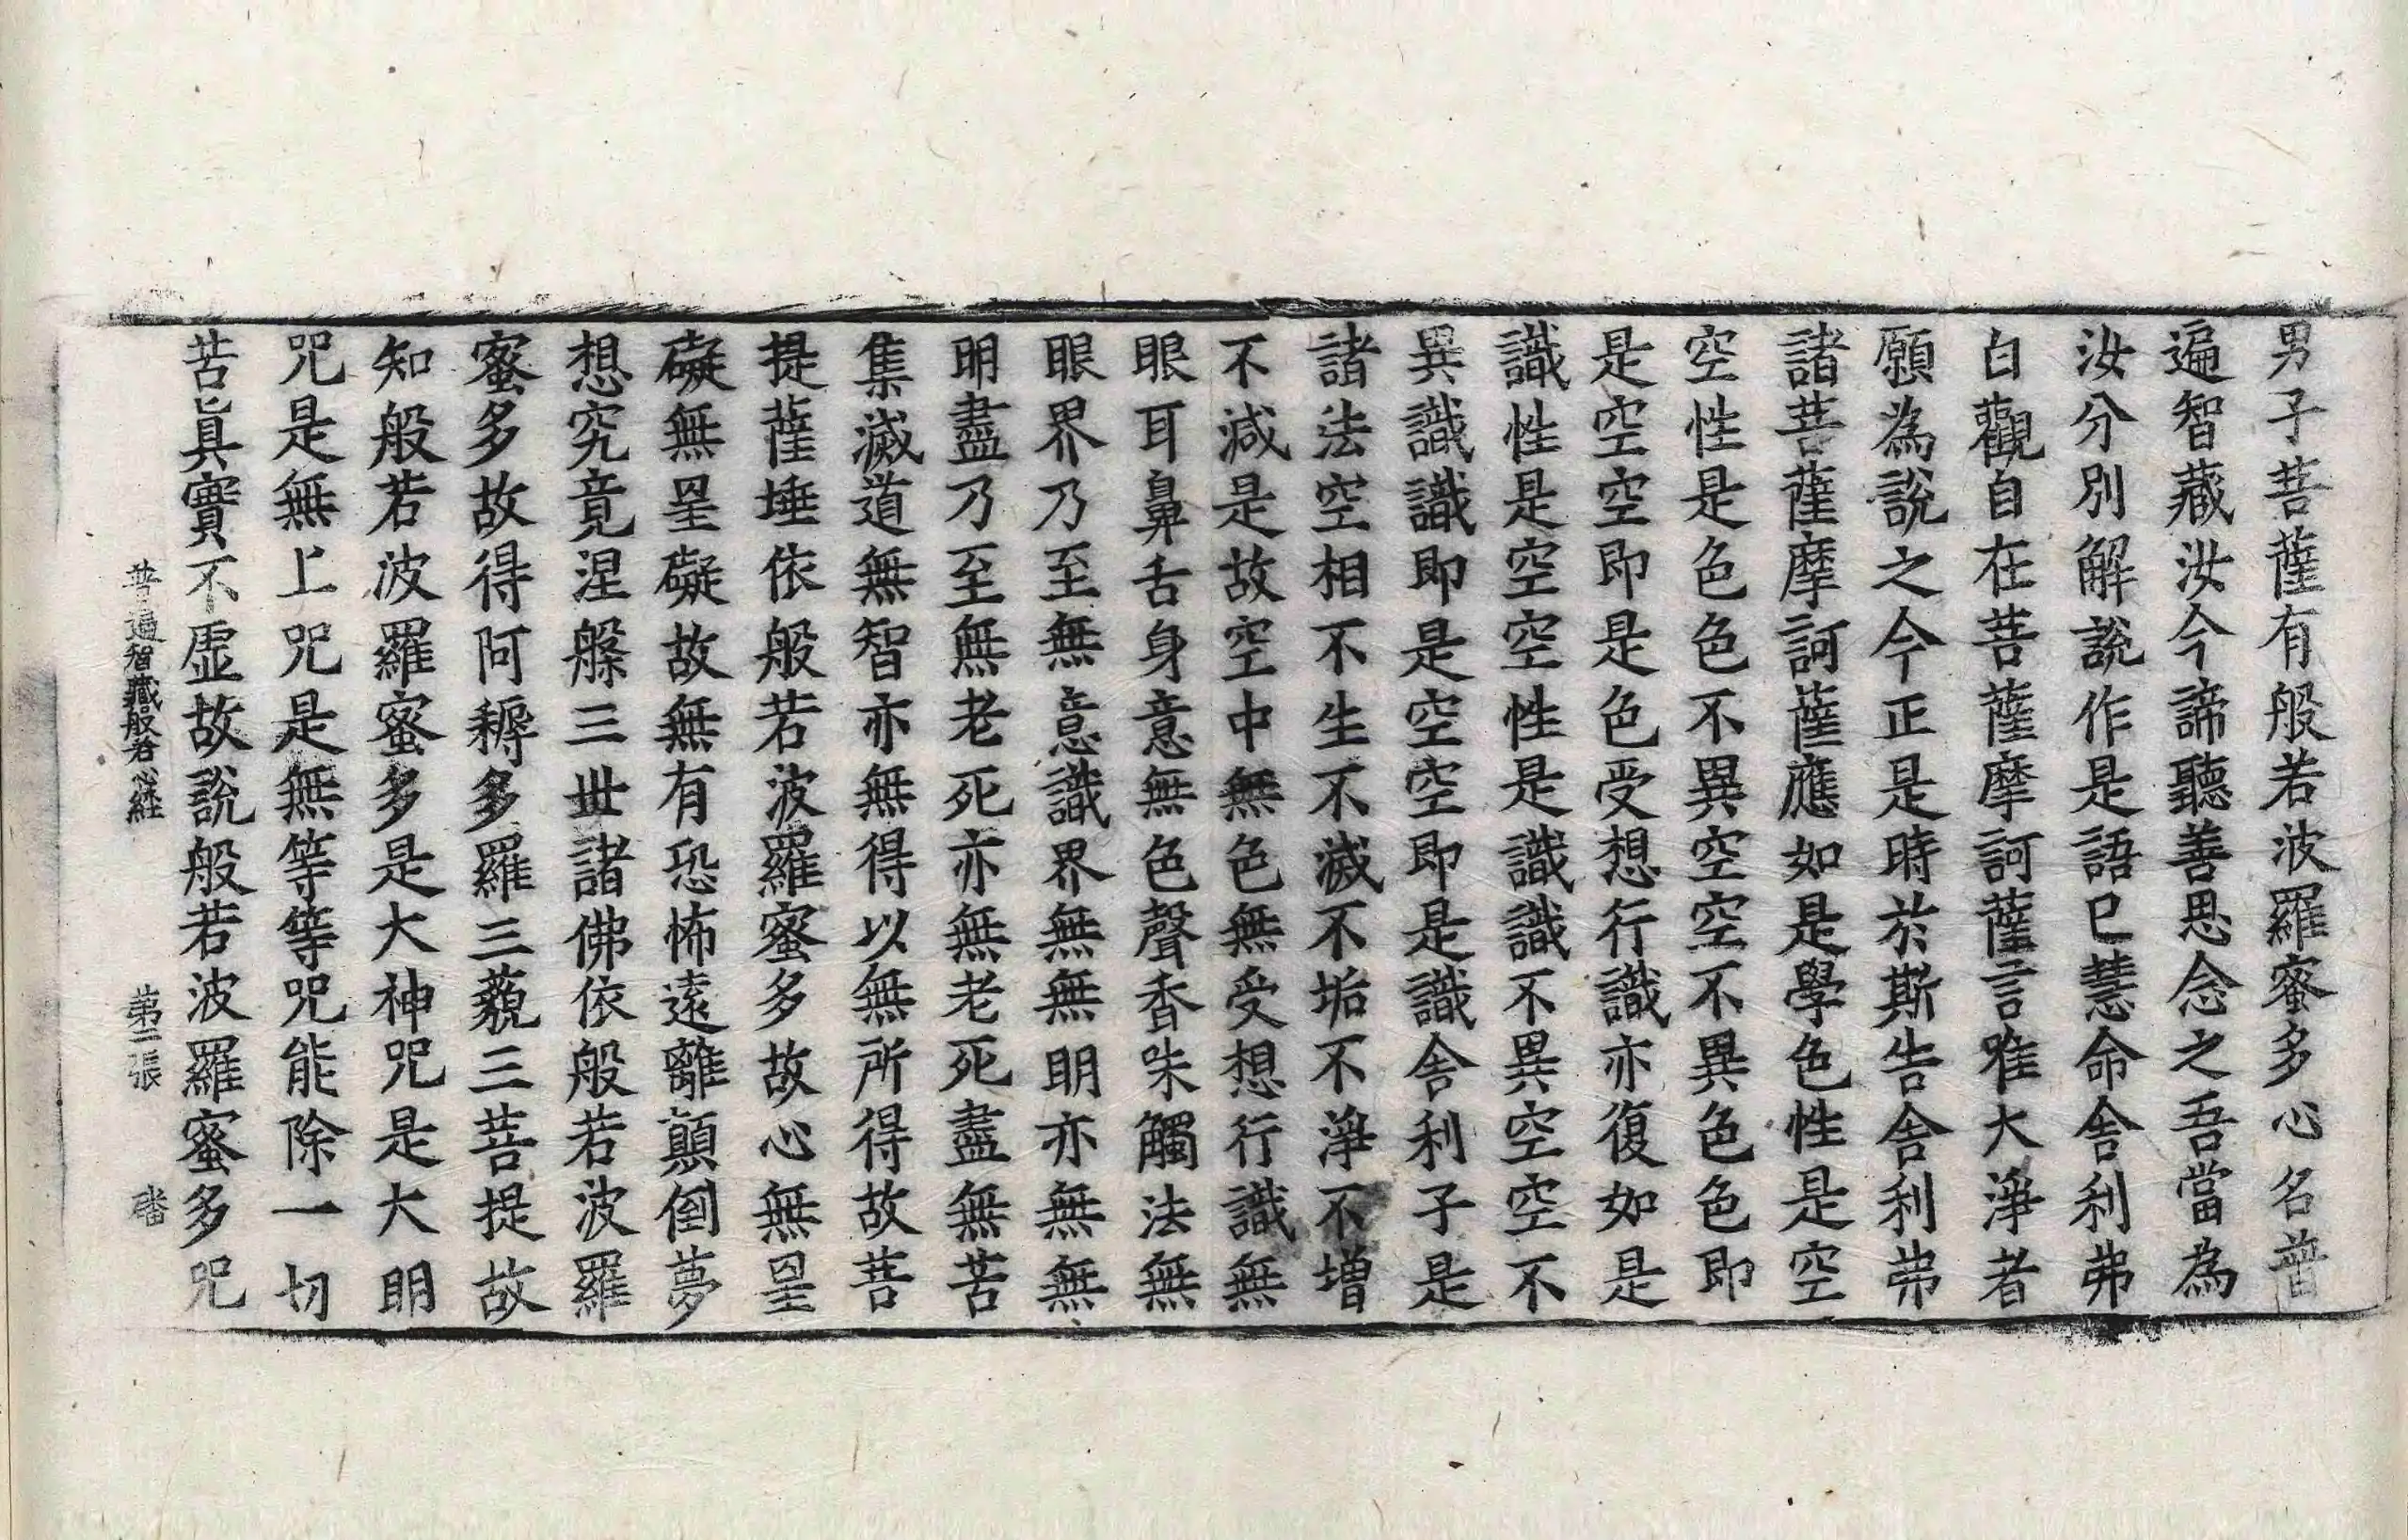 男子菩薩有般若波羅蜜多心名普
遍智藏汝今諦聽善思念之吾當為
汝分別解說作是語已慧命舍利弗
白觀自在菩薩摩訶薩言唯大淨者
願為說之今正是時於斯告舍利弗
諸菩薩摩訶薩應如是學色性是空
空性是色色不異空空不異色色即
是空空即是色受想行識亦復如是
識性是空空性是識識不異空空不
異識識即是空空即是識舍利子是
諸法空相不生不滅不垢不淨不增
不減是故空中無色無受想行識無
眼耳鼻舌身意無色聲香味觸法無
眼界乃至無意識界無無明亦無無
明盡乃至無老死亦無老死盡無苦
集滅道無智亦無得以無所得故菩
提薩埵依般若波羅蜜多故心無罣
礙無罣礙故無有恐怖遠離顛倒夢
想究竟涅槃三世諸佛依般若波羅
蜜多故得阿耨多羅三藐三菩提故
知般若波羅蜜多是大神咒是大明
咒是無上咒是無等等咒能除一切
苦真實不虛故說般若波羅蜜多咒
普遍智藏般若心経 第二張